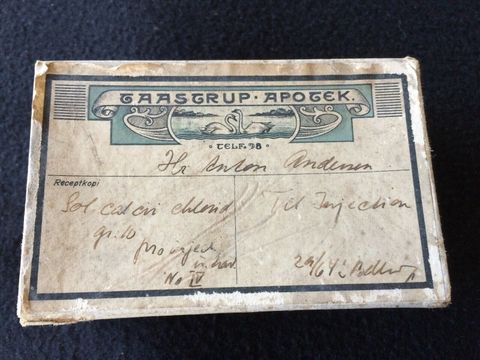 TAASTRUP · APOTEK.
TELF. 98
Hr Anton Andersen
Receptkopi
Sol. calcii chlorid
gr. 10
pro inject
No IV
Til Injection
29/6 41